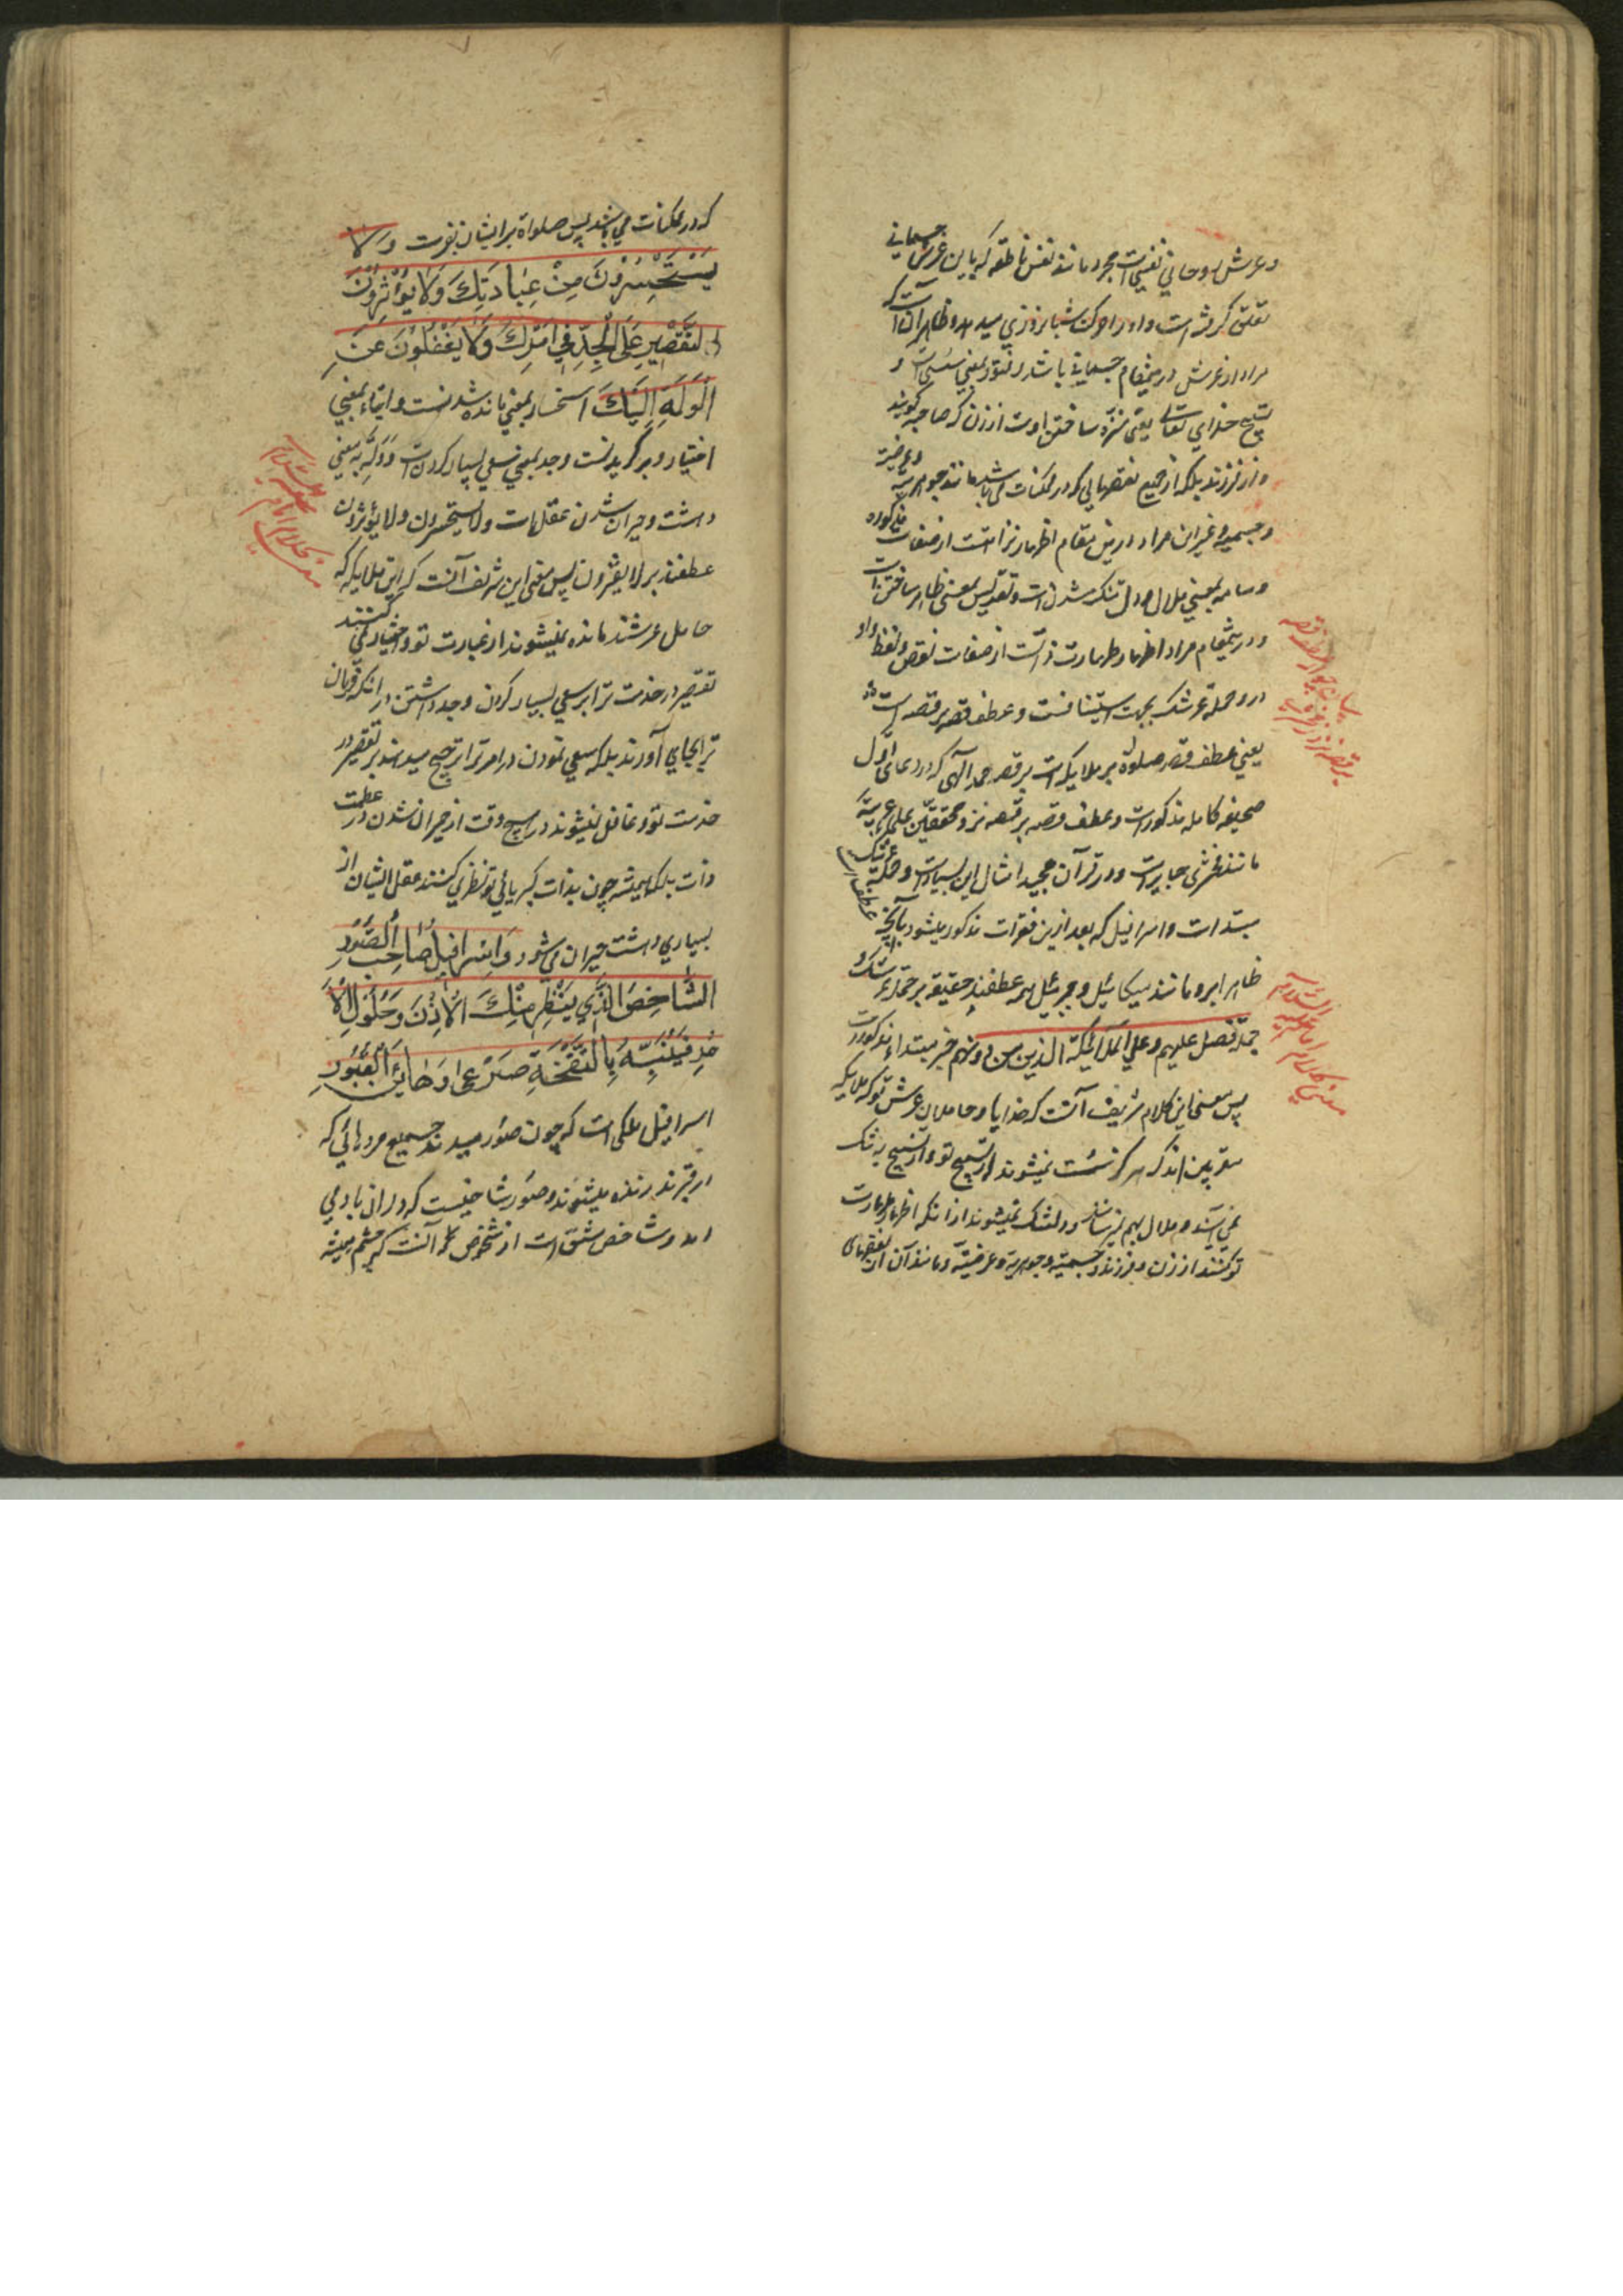 وعرش روحاني نفسي است مجرد مانند نفس ناطقه كه باين عرش جسماني
تعلق گرفته است واو را حركت شبانروزي ميدهد و ظاهر آنست كه
مراد از عرش درينمقام جسماني باشد و فتور بمعني سستي است و
تسبيح خداي تعالي يعني منزه ساختن اوست از زن كه صاحبه گويند
و از فرزند بلكه از جميع نقصهايي كه در ممكنات مي باشد مانند جوهريه و عرضيه
و جسميه و غير ان مراد درين مقام اظهار نزاهتست از صفات مذكوره
وسامه بمعني ملال و دل تنگ شدن است و تقديس بمعني ظاهر ساختن است
و درينمقام مراد اظهار طهارت ذاتست از صفات نقص و لفظ واو
در وحملة عرشك بجهت استينافست و عطف قصه بر قصه است
يعني عطف قصه صلوة بر ملايكه است بر قصه حمد الهي كه در دعاي اول
صحيفه كامله مذكور است و عطف قصه بر قصه نزد محققين علم عربية
مانند زمخشري جايز است و در قرآن مجيد امثال اين بسيار است و حملة عرشك
مبتدا است و اسرافيل كه بعد ازين فقرات مذكور ميشود با آنچه
ظاهرا برو مانند ميكائيل و جبرئيل همه عطفند حقيقة بر حملة عرشك و
جملة فصل عليهم وعلي الملائكة الذين من دونهم خبر مبتداء مذكورست
پس معني اين كلام شريف آنست كه خدايا و حاملان عرش تو كه ملايكه
مقربين اند كه هرگز سست نميشوند از تسبيح تو و از تسبيح به تنگ
نمي آيند و ملال بهم نميرسانند و دلتنگ نميشوند از انكه اظهار طهارت
تو كنند از زن و فرزند و جسمية و جوهرية و عرضية و مانند آن از نقصهاي
كه در ممكنات مي باشد پس صلواة بر ايشان بفرست وَلا
يَسْتَحْسِرُونَ مِنْ عِبَادَتِكَ وَلا يُؤْثِرُونَ
التَّقْصِيرِ عَلَى الْجِدِّ فِي اَمْرِكَ وَلا يَغْفُلُونَ عَنِ
الْوَلَهِ اِلَيْكَ استحسار بمعني مانده شدنست و ايثار بمعني
اختيار و برگزيدنست و جد بمعني سعي بسيار كردن است و وله به معني
دهشت و حيران شدن عقل است ولا يستحسرون ولا يؤثرون
عطفند بر لا يفترون پس معني اين شريف آنست كه اين ملايكه كه
حامل عرشند مانده نميشوند از عبارت تو و اختيار نمي كنند
تقصير در خدمت ترا بر سعي بسيار كردن و جد داشتن در انكه فرمان
ترا بجاي آورند بلكه سعي نمودن در امر ترا ترجيح ميدهند بر تقصير در
خدمت تو و غافل نميشوند در هيچ وقت از حيران شدن در عظمت
ذات بلكه هميشه چون بذات كبريائي تو نظر مي كنند عقل ايشان از
بسياري دهشت حيران مي شود وَاِسْرَافِيلُ صَاحِبُ الصُّورِ
الشَّاخِصُ الَّذِي يَنْتَظِرُ مِنْكَ الْاِذْنَ وَحُلُولَ الْاَ
مْرِ فَيُنَبِّهُ بِالنَّفْخَةِ صَرْعَى رَهَائِنَ الْقُبُورِ
اسرافيل ملكي است كه چون صور ميدمد جميع مردهائي كه
در قبرند زنده ميشوند و صور شاخيست كه در ان باد مي
دمد و شاخص مشتق است از شخوص و آنست كه چشم هميشه